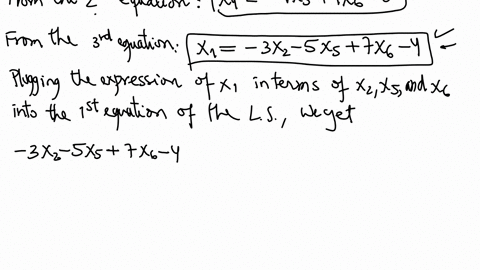 From the 2 equation:
From the 3rd equation: x₁ = -3x₂-5x₅+7x₆-4
Plugging the expression of x₁ in terms of x₂, x₅, and x₆
into the 1st equation of the L.S., we get
-3x₂-5x₅+7x₆-4